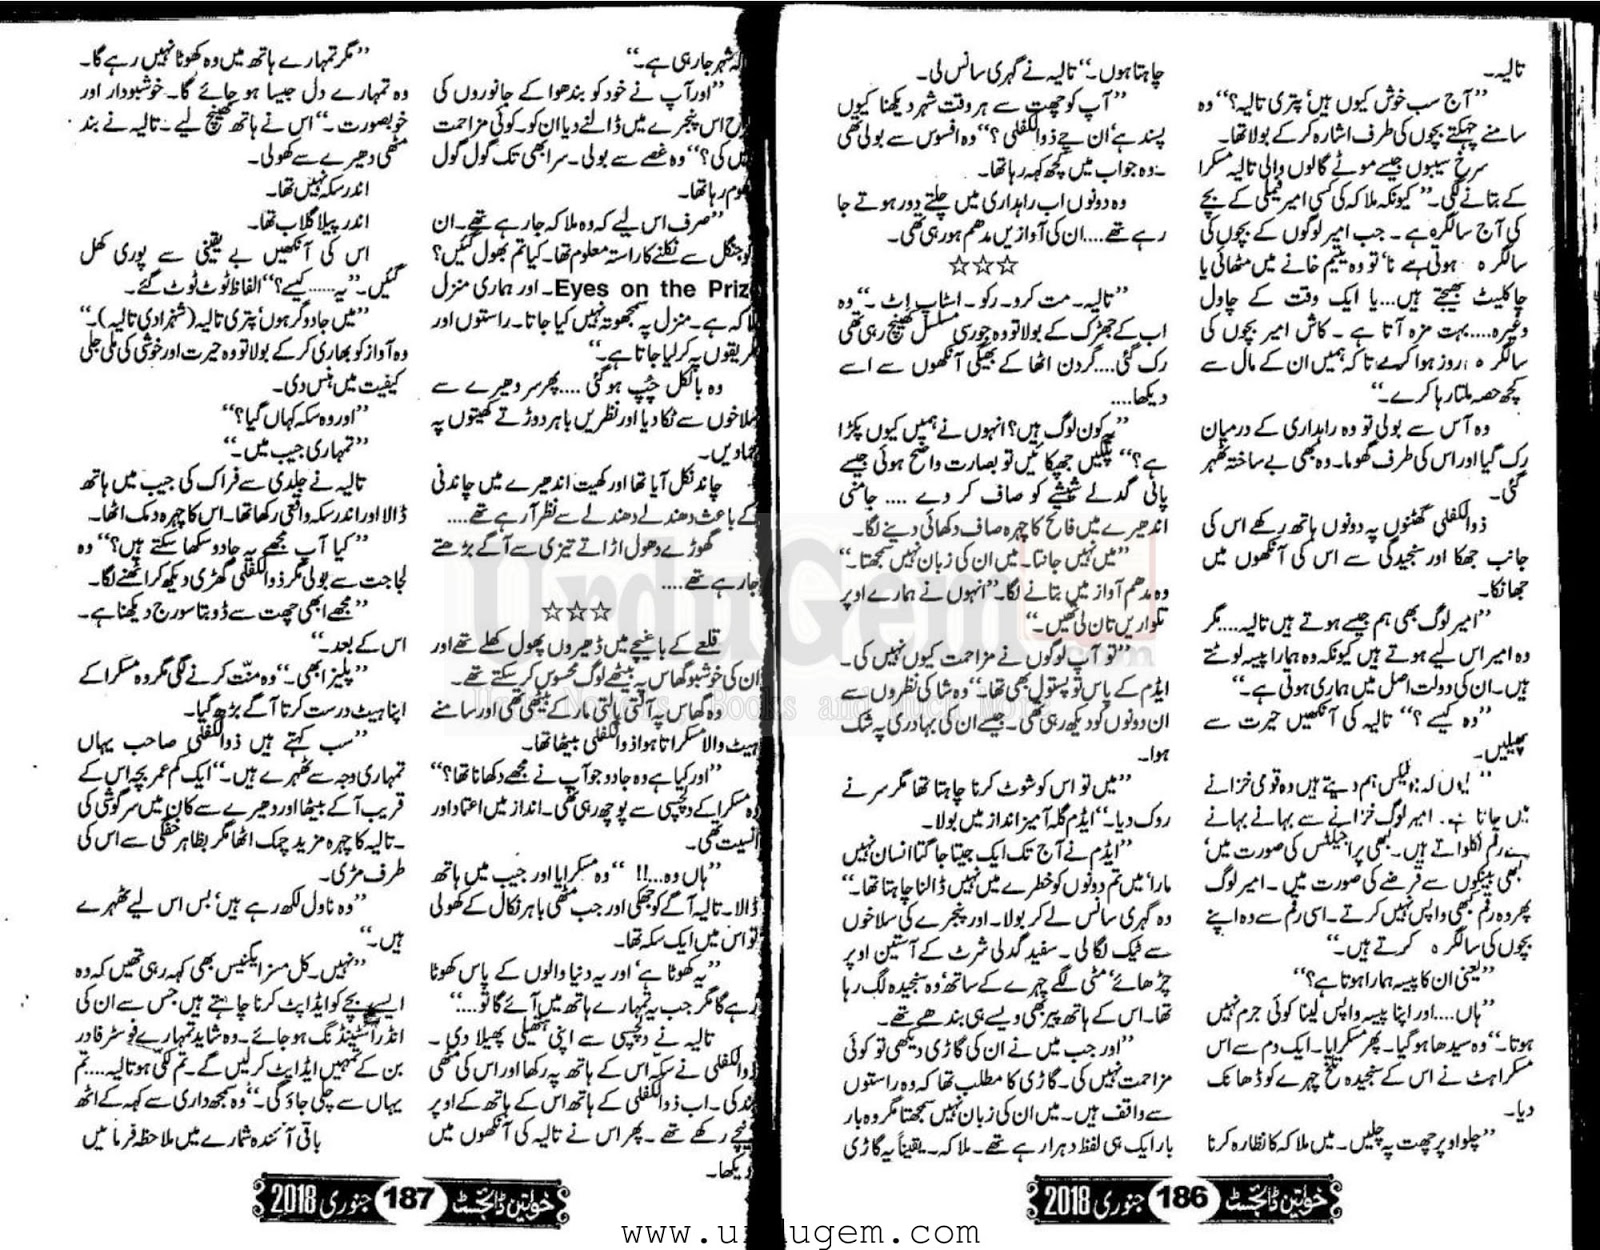 تالیہ۔
”آج سب خوش کیوں ہیں‘ پتری تالیہ؟“ وہ
سامنے چہکتے بچوں کی طرف اشارہ کر کے بولا تھا۔
سرخ سیبوں جیسے موٹے گالوں والی تالیہ مسکرا
کے بتانے لگی۔ ”کیونکہ ملاکہ کی کسی امیر فیملی کے بچے
کی آج سالگرہ ہے۔ جب امیر لوگوں کے بچوں کی
سالگرہ ہوتی ہے نا‘ تو وہ یتیم خانے میں مٹھائی یا
چاکلیٹ بھیجتے ہیں... یا ایک وقت کے چاول
وغیرہ.... بہت مزہ آتا ہے۔ کاش امیر بچوں کی
سالگرہ روز ہوا کرے تاکہ ہمیں ان کے مال سے
کچھ حصہ ملتا رہا کرے۔“
وہ اس سے بولی تو وہ راہداری کے درمیان
رک گیا اور اس کی طرف گھوما۔ وہ بھی بے ساختہ ٹھہر
گئی۔
ذوالکفلی گھٹنوں پہ دونوں ہاتھ رکھے اس کی
جانب جھکا اور سنجیدگی سے اس کی آنکھوں میں
جھانکا۔
”امیر لوگ بھی ہم جیسے ہوتے ہیں تالیہ.... مگر
وہ امیر اس لیے ہوتے ہیں کیونکہ وہ ہمارا پیسہ لوٹتے
ہیں۔ ان کی دولت اصل میں ہماری ہوتی ہے۔“
”وہ کیسے؟“ تالیہ کی آنکھیں حیرت سے
پھیلیں۔
”یوں کہ جو ٹیکس ہم دیتے ہیں وہ قومی خزانے
میں جاتا ہے۔ امیر لوگ خزانے سے بہانے بہانے
سے رقم نکلواتے ہیں۔ کبھی پراجیکٹس کی صورت میں‘
کبھی بینکوں سے قرضے کی صورت میں۔ امیر لوگ
پھر وہ رقم کبھی واپس نہیں کرتے۔ اسی رقم سے وہ اپنے
بچوں کی سالگرہ کرتے ہیں۔“
”یعنی ان کا پیسہ ہمارا ہوتا ہے؟“
”ہاں.... اور اپنا پیسہ واپس لینا کوئی جرم نہیں
ہوتا۔“ وہ سیدھا ہو گیا۔ پھر مسکرایا۔ ایک دم سے اس
مسکراہٹ نے اس کے سنجیدہ تلخ چہرے کو ڈھانک
دیا۔
”چلو اوپر چھت پہ چلیں۔ میں ملاکہ کا نظارہ کرنا
چاہتا ہوں۔“ تالیہ نے گہری سانس لی۔
”آپ کو چھت سے ہر وقت شہر دیکھنا کیوں
پسند ہے‘ ان چے ذوالکفلی؟“ وہ افسوس سے بولی تھی
۔ وہ جواب میں کچھ کہہ رہا تھا۔
وہ دونوں اب راہداری میں چلتے دور ہوتے جا
رہے تھے.... ان کی آوازیں مدھم ہو رہی تھی۔
☆☆☆
”تالیہ۔ مت کرو۔ رکو۔ اسٹاپ اٹ۔“ وہ
اب کے جھڑک کے بولا تو وہ جو رسی مسلسل کھینچ رہی تھی
رک گئی.... گردن اٹھا کے بھیگی آنکھوں سے اسے
دیکھا....
”یہ کون لوگ ہیں؟ انہوں نے ہمیں کیوں پکڑا
ہے؟“ پلکیں جھپکائیں تو بصارت واضح ہوئی جیسے
پانی گدلے شیشے کو صاف کر دے .... جامنی
اندھیرے میں فاتح کا چہرہ صاف دکھائی دینے لگا۔
”میں نہیں جانتا۔ میں ان کی زبان نہیں سمجھتا۔“
وہ مدھم آواز میں بتانے لگا۔ ”انہوں نے ہمارے اوپر
تلواریں تان لی تھیں۔“
”تو آپ لوگوں نے مزاحمت کیوں نہیں کی۔
ایڈم کے پاس تو پستول بھی تھا۔“ وہ شاکی نظروں سے
ان دونوں کو دیکھ رہی تھی۔ جیسے ان کی بہادری پہ شک
ہوا۔
”میں تو اس کو شوٹ کرنا چاہتا تھا مگر سر نے
روک دیا۔“ ایڈم گلہ آمیز انداز میں بولا۔
”ایڈم نے آج تک ایک جیتا جاگتا انسان نہیں
مارا‘ میں تم دونوں کو خطرے میں نہیں ڈالنا چاہتا تھا۔“
وہ گہری سانس لے کر بولا۔ اور پنجرے کی سلاخوں
سے ٹیک لگالی۔ سفید گدلی شرٹ کے آستین اوپر
چڑھائے‘ مٹی لگے چہرے کے ساتھ‘ وہ سنجیدہ لگ رہا
تھا۔ اس کے ہاتھ پیر بھی ویسے ہی بندھے تھے۔
”اور جب میں نے ان کی گاڑی دیکھی تو کوئی
مزاحمت نہیں کی۔ گاڑی کا مطلب تھا کہ وہ راستوں
سے واقف ہیں۔ میں ان کی زبان نہیں سمجھتا مگر وہ بار
بار ایک ہی لفظ دہرا رہے تھے۔ ملاکہ۔ یقیناً یہ گاڑی
خواتین ڈائجسٹ 186 جنوری 2018
شہر جا رہی ہے۔“
”اور آپ نے خود کو بندھوا کے جانوروں کی
اس پنجرے میں ڈالنے دیا ان کو۔ کوئی مزاحمت
کی؟“ وہ غصے سے بولی۔ سر ابھی تک گول گول
رہا تھا۔
”صرف اس لیے کہ وہ ملاکہ جا رہے تھے۔ ان
کو جنگل سے نکلنے کا راستہ معلوم تھا۔ کیا تم بھول گئیں؟
Eyes on the Priz۔ اور ہماری منزل
ملاکہ ہے۔ منزل پہ سمجھوتہ نہیں کیا جاتا۔ راستوں اور
طریقوں پہ کر لیا جاتا ہے۔“
وہ بالکل چپ ہو گئی .... پھر سر دھیرے سے
سلاخوں سے ٹکا دیا اور نظریں باہر دوڑتے کھیتوں پہ
جما دیں۔
چاند نکل آیا تھا اور کھیت اندھیرے میں چاندنی
کے باعث دھندلے دھندلے سے نظر آ رہے تھے....
گھوڑے دھول اڑاتے تیزی سے آگے بڑھتے
جا رہے تھے....
☆☆☆
قلعے کے باغیچے میں ڈھیروں پھول کھلے تھے اور
ان کی خوشبو گھاس پہ بیٹھے لوگ محسوس کر سکتے تھے۔
وہ گھاس پہ آلتی پالتی مار کے بیٹھی تھی اور سامنے
ہیٹ والا مسکراتا ہوا ذوالکفلی بیٹھا تھا۔
”اور کیا ہے وہ جادو جو آپ نے مجھے دکھانا تھا؟“
وہ مسکرا کے دلچسپی سے پوچھ رہی تھی۔ انداز میں اعتماد اور
انسیت تھی۔
”ہاں وہ...!! “ وہ مسکرایا اور جیب میں ہاتھ
ڈالا۔ تالیہ آگے کو جھکی اور جب مٹھی باہر نکال کے کھولی
تو اس میں ایک سکہ تھا۔
”یہ کھوٹا ہے‘ اور یہ دنیا والوں کے پاس کھوٹا
رہے گا مگر جب یہ تمہارے ہاتھ میں آئے گا تو....“
تالیہ نے دلچسپی سے اپنی ہتھیلی پھیلا دی۔
ذوالکفلی نے سکہ اس کے ہاتھ پہ رکھا اور اس کی مٹھی
بند کی۔ اب ذوالکفلی کے ہاتھ اس کے ہاتھ کے اوپر
نیچے رکھے تھے۔ پھر اس نے تالیہ کی آنکھوں میں
دیکھا۔
”مگر تمہارے ہاتھ میں وہ کھوٹا نہیں رہے گا۔
وہ تمہارے دل جیسا ہو جائے گا۔ خوشبودار اور
خوبصورت۔“ اس نے ہاتھ کھینچ لیے۔ تالیہ نے بند
مٹھی دھیرے سے کھولی۔
اندر سکہ نہیں تھا۔
اندر پیلا گلاب تھا۔
اس کی آنکھیں بے یقینی سے پوری کھل
گئیں۔ ”یہ...... کیسے؟“ الفاظ ٹوٹ ٹوٹ گئے۔
”میں جادوگر ہوں‘ پتری تالیہ (شہزادی تالیہ)۔“
وہ آواز کو بھاری کر کے بولا تو وہ حیرت اور خوشی کی ملی جلی
کیفیت میں ہنس دی۔
”اور وہ سکہ کہاں گیا؟“
”تمہاری جیب میں۔“
تالیہ نے جلدی سے فراک کی جیب میں ہاتھ
ڈالا اور اندر سکہ واقعی رکھا تھا۔ اس کا چہرہ دمک اٹھا۔
”کیا آپ مجھے یہ جادو سکھا سکتے ہیں؟“ وہ
لجاجت سے بولی مگر ذوالکفلی گھڑی دیکھ کر اٹھنے لگا۔
”مجھے ابھی چھت سے ڈوبتا سورج دیکھنا ہے۔
اس کے بعد۔“
”پلیز ابھی۔“ وہ منت کرنے لگی مگر وہ مسکرا کے
اپنا ہیٹ درست کرتا آگے بڑھ گیا۔
”سب کہتے ہیں ذوالکفلی صاحب یہاں
تمہاری وجہ سے ٹھہرے ہیں۔“ ایک کم عمر بچہ اس کے
قریب آ کے بیٹھا اور دھیرے سے کان میں سرگوشی کی
۔ تالیہ کا چہرہ مزید چمک اٹھا مگر بظاہر خفگی سے اس کی
طرف مڑی۔
”وہ ناول لکھ رہے ہیں‘ بس اس لیے ٹھہرے
ہیں۔“
”نہیں۔ کل مسز ایگنیس بھی کہہ رہی تھیں کہ وہ
ایسے بچے کو ایڈاپٹ کرنا چاہتے ہیں جس سے ان کی
انڈراسٹینڈنگ ہو جائے۔ وہ شاید تمہارے فوسٹر فادر
بن کے تمہیں ایڈاپٹ کر لیں گے۔ تم لکی ہو تالیہ.... تم
یہاں سے چلی جاؤ گی۔“ وہ سمجھداری سے کہہ کے اٹھ
باقی آئندہ شمارے میں ملاحظہ فرمائیں
خواتین ڈائجسٹ 187 جنوری 2018
UrduGem.com
Urdu Novels, Books and Much More
www.urdugem.com